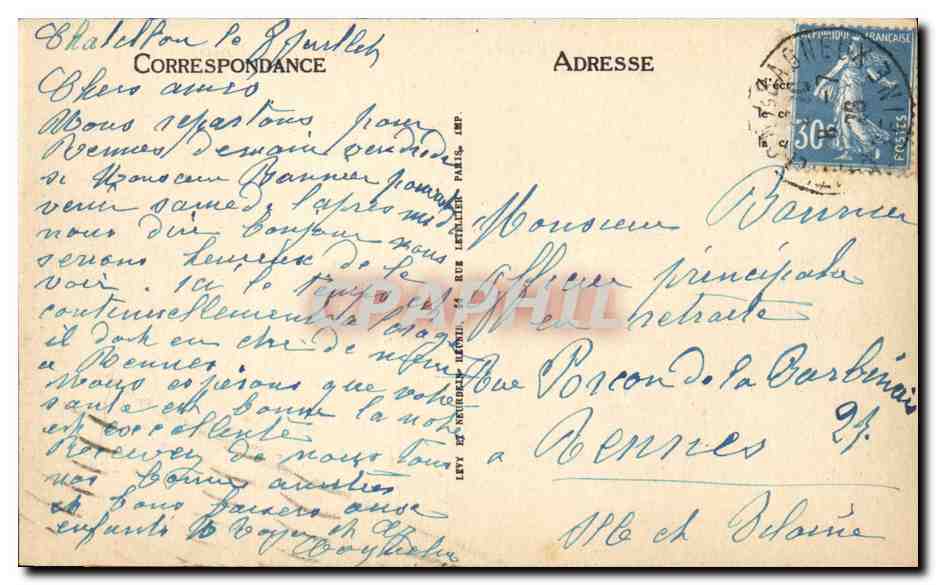 Chatillon le 8 Juillet
CORRESPONDANCE
Chers amis
Nous repartons pour
Rennes demain vendredi
si Monsieur Bannier pouvait
venir samedi l'après midi
nous dire bonjour nous
serions heureux de le
voir. ici le temps est
continuellement à l'orage
il doit en être de même
a Rennes
Nous espérons que votre
santé est bonne la notre
est excellente
Recevez de nous tous
nos bonnes amitiés
et bons baisers aux
enfants
LEVY ET NEURDEIN RÉUNIS, 44 RUE LETELLIER - PARIS, IMP.
ADRESSE
RÉPUBLIQUE FRANÇAISE
30
POSTES
Monsieur Bannier
Officier principale
en retraite
Rue Porcon de la Barbinais
21.
a Rennes
Ille et Vilaine
CPAPHIL